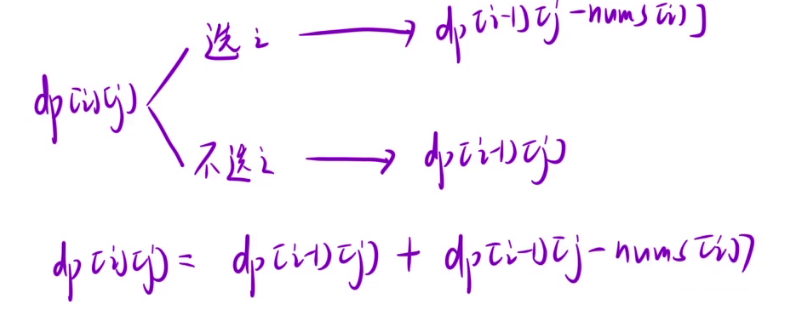 选i → dp[i-1][j-nums[i]]
dp[i][j]
不选i → dp[i-1][j]
dp[i][j] = dp[i-1][j] + dp[i-1][j-nums[i]]